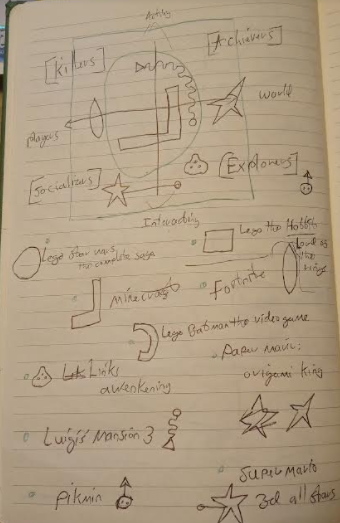 Acting
[Killers]
[Achievers]
players
world
[Socializers]
[Explorers]
Interacting
Lego Star wars
the complete saga
Lego the Hobbit
Lord of
the
rings
minecraft
Fortnite
Lego Batman the video game
Links
awakening
Paper Mario:
origami king
Luigi's Mansion 3
Super Mario
3d all stars
Pikmin